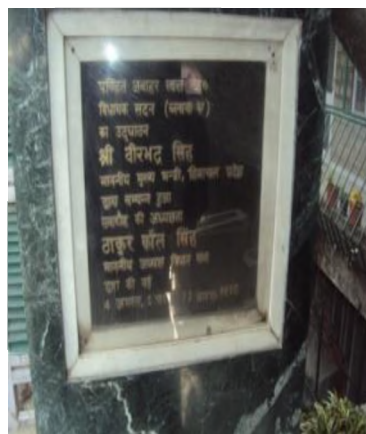 पण्डित जवाहर लाल
विधायक सदन
का उद्घाटन
श्री वीरभद्र सिंह
माननीय मुख्य मन्त्री, हिमाचल प्रदेश
द्वारा सम्पन्न हुआ
समारोह की अध्यक्षता
ठाकुर कौल सिंह
माननीय अध्यक्ष विधान सभा
द्वारा की गई